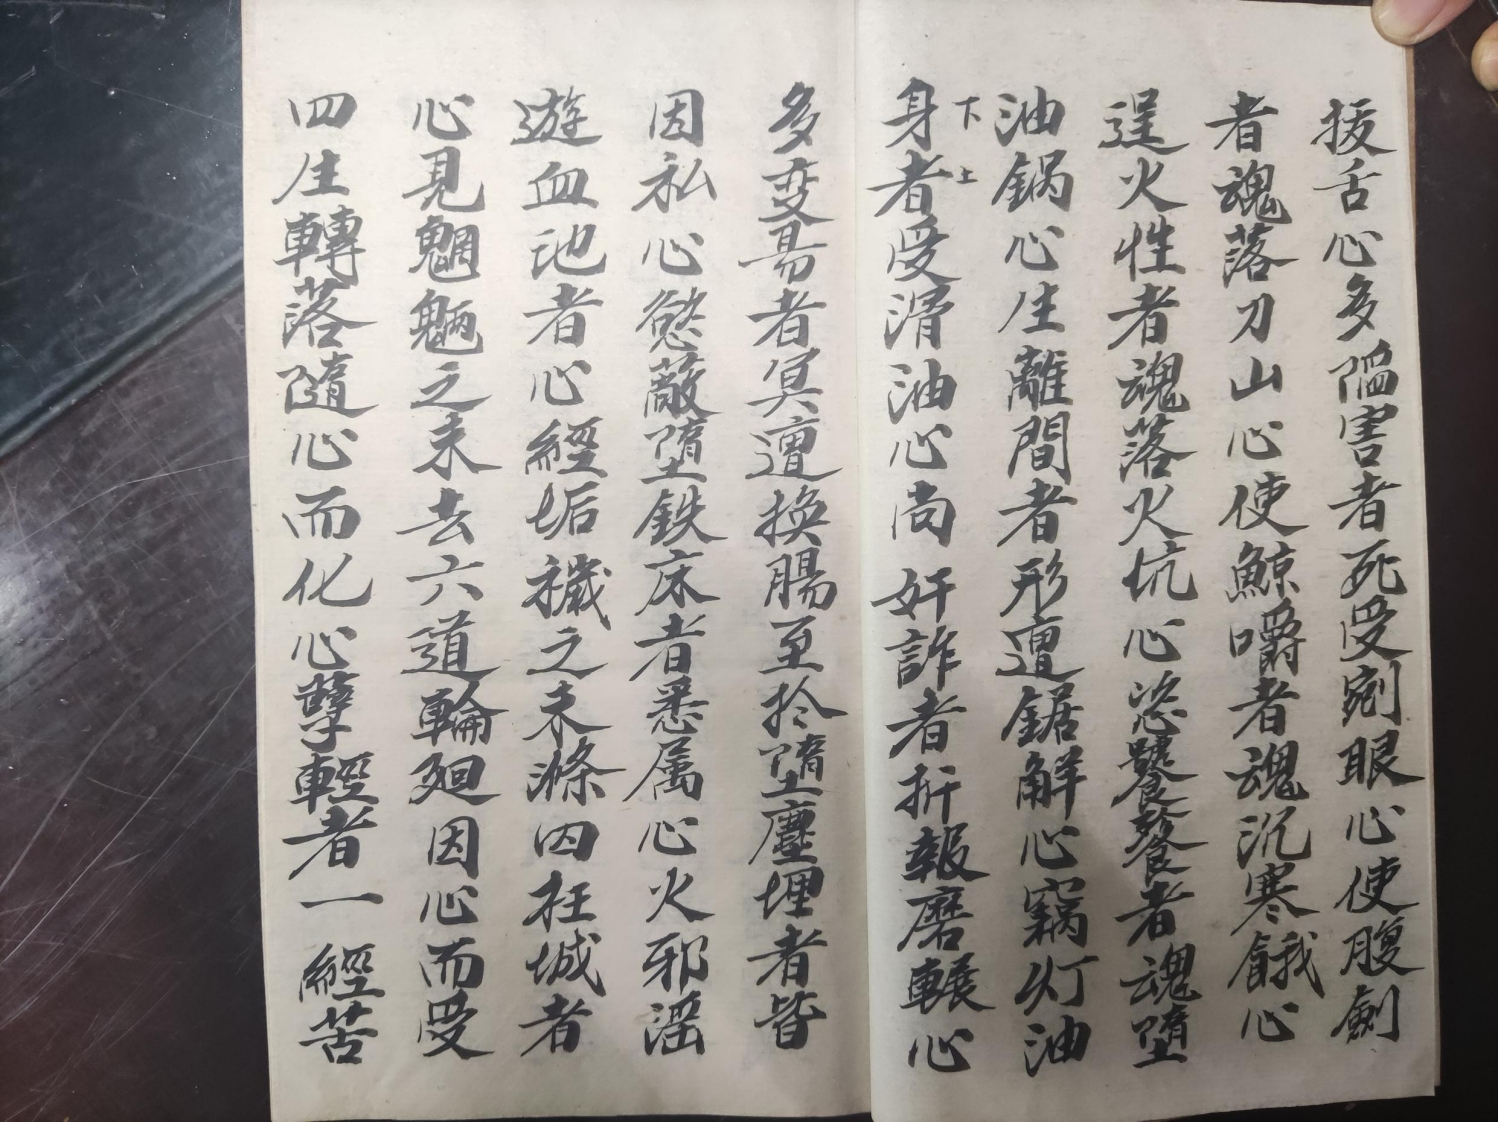 拔舌心多陷害者死受剜眼心使腹劍
者魂落刀山心使鯨嚼者魂沉寒餓心
逞火性者魂落火坑心恣饕餮者魂墮
油鍋心生離間者形遭鋸解心竊灯油
身者受滑油心尚奸詐者折報磨輾心
下上
多変易者冥遭換腸至於墮塵埋者皆
因私心慾蔽墮鉄床者悉属心火邪滛
遊血池者心經垢穢之未滌囚枉城者
心見魍魎之未去六道輪廻因心而受
四生轉落隨心而化心孽輕者一經苦